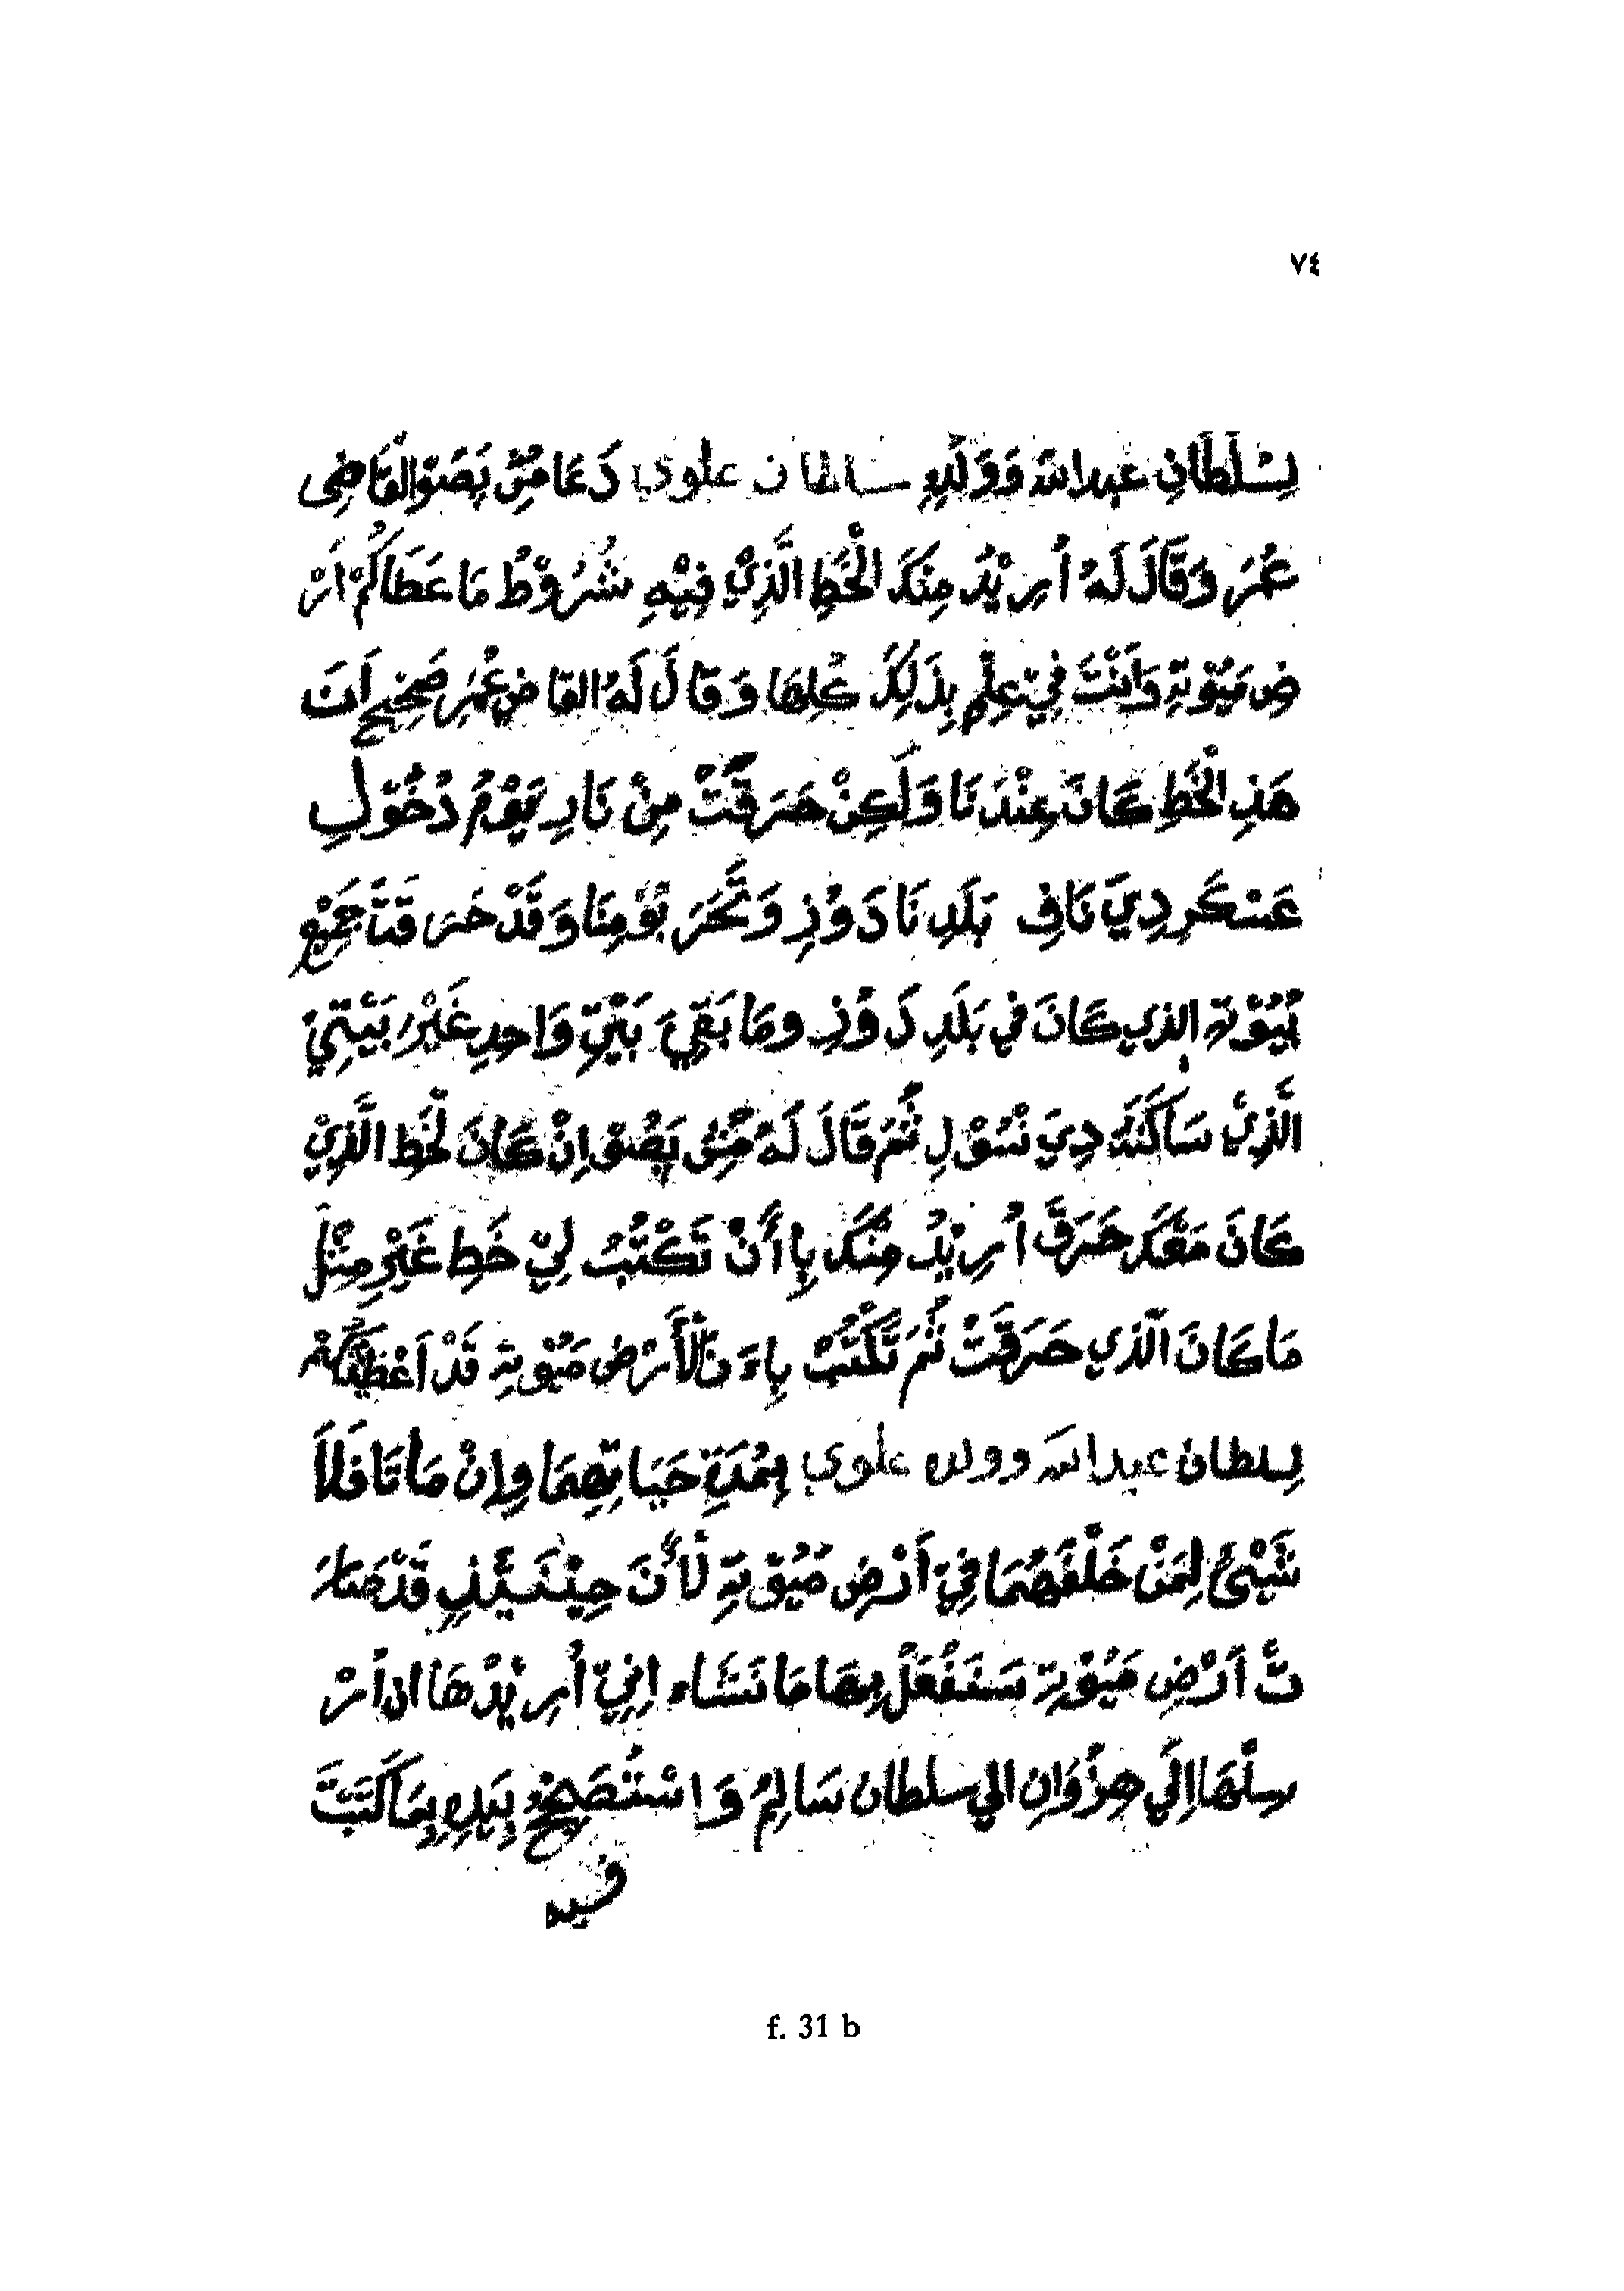 ٧٤
لِسُلْطَانِ عبدالله وَوَلَدِهِ سلطان علوي دَعَا مُسِّ بَصَوْ القَاضِى
عُمَرَ وَقَالَ لَهُ اُرِيْدُ مِنْكَ الْخَطِ الَّذِيْ فِيْهِ شُرُوْطُ مَا عَطَاكُمْ اَرْ
ضِ مَيُوْتِهِ وَاَنْتَ فِيْ عِلْمِ بِذَلِكَ كُلِهَا وَقَالَ لَهُ القاضِ عُمَرِ صَحِيْح اَنَ
هَذِ الْخَطِ كَانَ عِنْدَنَا وَلَكِنْ حَرَقَتْ مِنْ نَارِ يَوْمُ دُخُوْلِ
عَسْكَرِ دِيَ نَافِ بَلَدِ نَا دَوُذِ وَنَّحَرَ بُوْمِنَا وَقَدْ حَرَقَتَ جَمِيْعِ
بُيُوْتِ الذي كَانَ في بَلَدِ دَوُذِ وما بَقِيَ بَيْتِ وَاحِدِ غَيْرُ بَيْتِيْ
الَّذِيْ سَاكَنَهُ دِيَ نُسُوْلِ ثُمَ قَالَ لَهُ مُسِّ بَصُوْ اِنْ كَانَ لْخَطِ الَّذِيْ
كَانَ مَعَكَ حَرَقَ اُرِيْدُ مِنْكَ بِاأَنْ تَكْتُبُ لِيْ خَطِ غَيْرِ مِثْلُ
مَا كَانَ الَّذي حَرَقَتْ ثُمَ تَكْتُبُ بِاءَنَ الْأَرْضِ مَيُوْتِهِ قَدْ اَعْطَيْنَاكُمْ
لسلطان عبدالله وولده علوي بِمُدَةِ حَيَاتِهِمَا وِانْ مَاتَا فَلَا
شَيْئُ لِمَنْ خَلْفَهُمَا فِيْ اَرْضِ مَيُوْتِهِ لْأَنَ حِيْنَئِذِ قَدْ صَارَ
تْ اَرْضِ مَيُوْتِهِ سَنَفْعَلْ بِهَا مَا نَشَاء اِنِيْ اُرِيْدُهَا ان اُرْ
سِلْهَا اِلَي جِزُوَانِ الي سلطان سَالِمُ وَاسْتُصَحِحْ بِيَدِهِ بِمَا كَتَبَتَ
فيه
f. 31 b